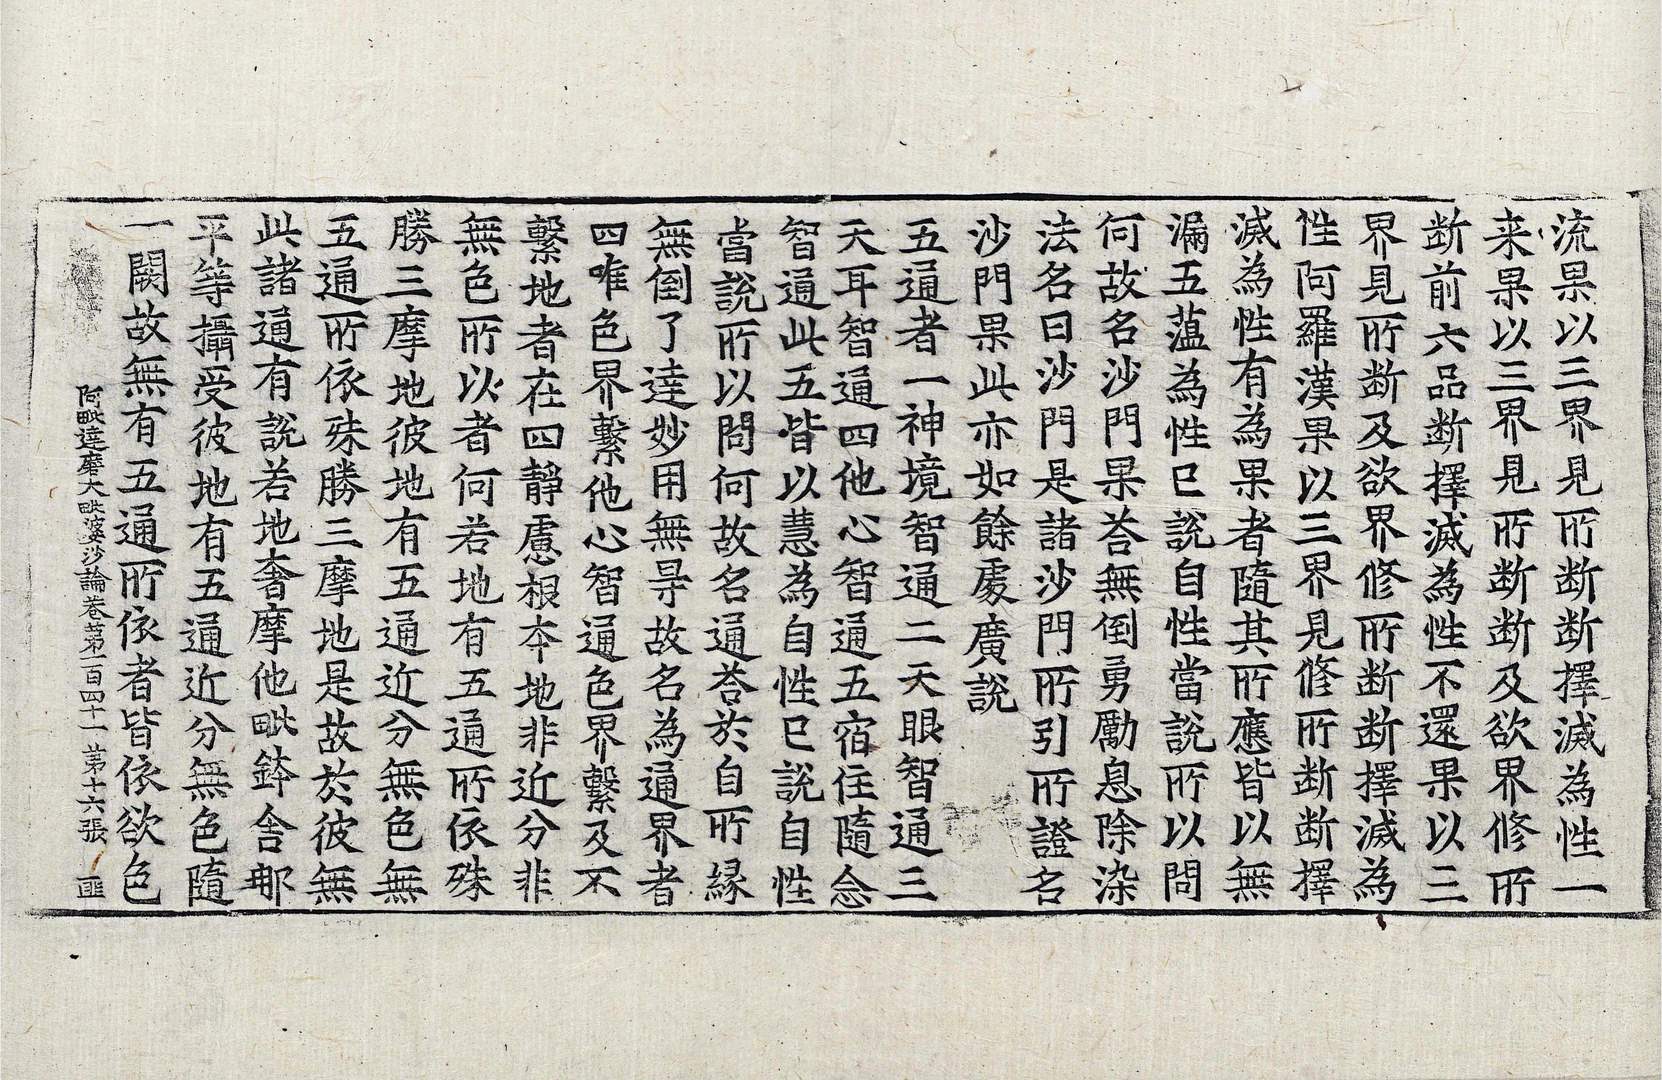 流果以三界見所断断擇滅為性一
来果以三界見所断断及欲界修所
断前六品断擇滅為性不還果以三
界見所断及欲界修所断断擇滅為
性阿羅漢果以三界見修所断断擇
滅為性有為果者隨其所應皆以無
漏五蕰為性已說自性當說所以問
何故名沙門果荅無倒勇勵息除染
法名曰沙門是諸沙門所引所證名
沙門果此亦如餘處廣說
五通者一神境智通二天眼智通三
天耳智通四他心智通五宿住隨念
智通此五皆以慧為自性已說自性
當說所以問何故名通荅於自所緣
無倒了達妙用無㝵故名為通界者
四唯色界繫他心智通色界繫及不
繫地者在四靜慮根本地非近分非
無色所以者何若地有五通所依殊
勝三摩地彼地有五通近分無色無
五通所依殊勝三摩地是故於彼無
此諸通有說若地奢摩他毗鉢舍那
平等攝受彼地有五通近分無色隨
一闕故無有五通所依者皆依欲色
阿毗達磨大毗婆沙論卷第一百四十一 第十六張 匪